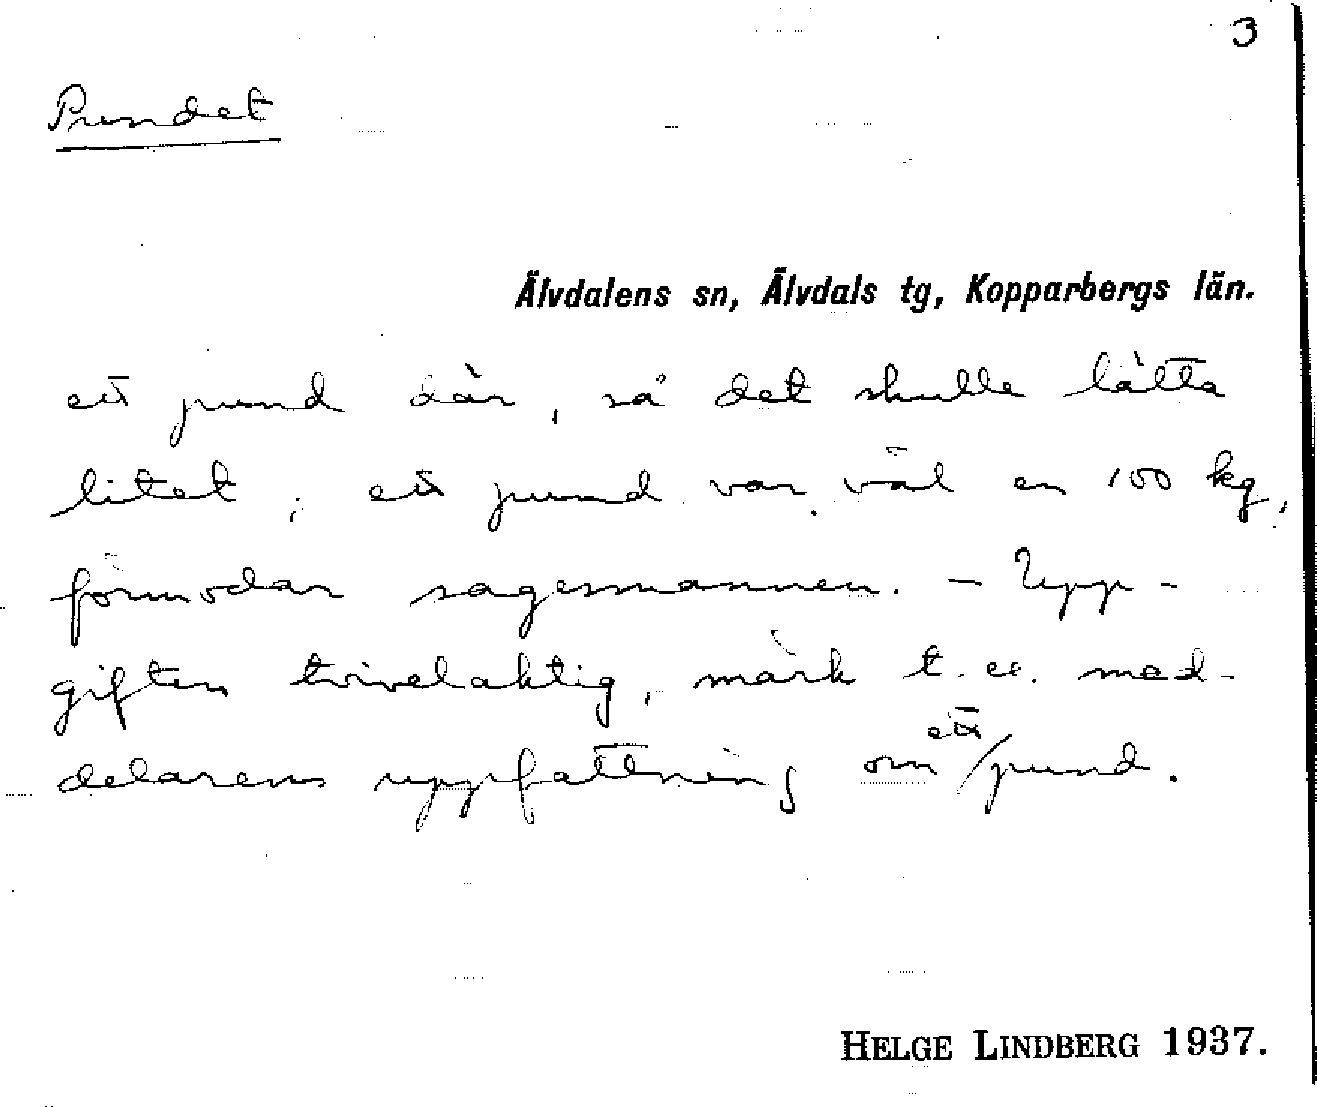 3
Pundet
Älvdalens sn, Älvdals tg, Kopparbergs län.
ett pund där, så det skulle lätta
litet; ett pund var väl en 100 kg,
förmodar sagesmannen. - Upp-
giften tvivelaktig, märk t. ex. med-
delarens uppfattning om ett/pund.
HELGE LINDBERG 1937.